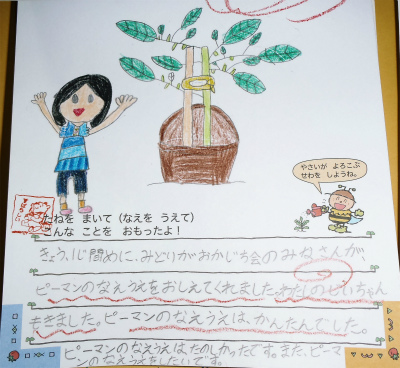 やさいが よろこぶ
せわを しようね。
たねを まいて(なえを うえて)
こんな ことを おもったよ!
きょう、1じ間めに、みどりがおかじち会のみなさんが、
ピーマンのなえうえをおしえてくれました。わたしのせいちゃん
もきました。ピーマンのなえうえは、かんたんでした。
ピーマンのなえうえはたのしかったです。また、ピーマ
ンのなえうえをしたいです。